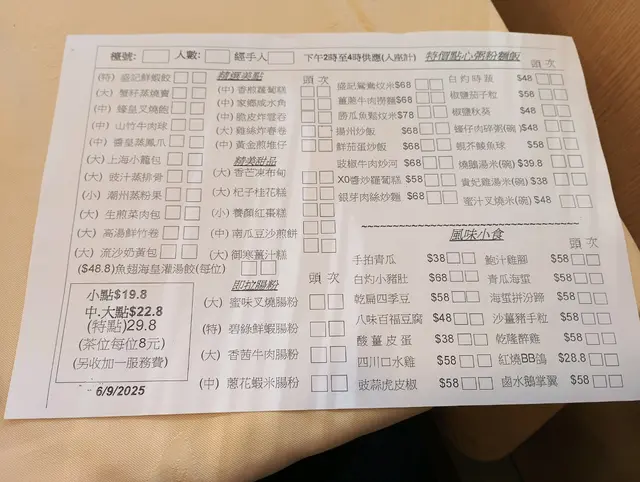 檯號: 人數: 經手人 下午2時至4時供應(人座計) 特價點心粥粉麵飯
頭 次
(特) 盛記鮮蝦餃
(大) 蟹籽蒸燒賣
(中) 蜂皇叉燒飽
(中) 山竹牛肉球
(中) 醬皇蒸鳳爪
(大) 上海小籠包
(大) 豉汁蒸排骨
(小) 潮州蒸粉果
(大) 生煎菜肉包
(大) 高湯鮮竹卷
(大) 流沙奶黃包
($48.8)魚翅海皇灌湯餃(每位)
小點$19.8
中.大點$22.8
(特點)29.8
(茶位每位8元)
(另收加一服務費)
6/9/2025
精選美點 頭 次
(中) 香煎蘿蔔糕
(中) 家鄉咸水角
(中) 脆皮炸雲吞
(大) 雞絲炸春卷
(中) 黃金煎堆仔
精美甜品
(大) 香芒凍布甸
(大) 杞子桂花糕
(小) 養顏紅棗糕
(中) 南瓜豆沙煎餅
(大) 御寒薑汁糕
即拉腸粉 頭 次
(大) 蜜味叉燒腸粉
(特) 碧綠鮮蝦腸粉
(大) 香茜牛肉腸粉
(中) 蔥花蝦米腸粉
盛記鴛鴦炆米$68
薑蔥牛肉撈麵$68
勝瓜魚鬆炆米$78
揚州炒飯 $68
鮮茄蛋炒飯 $68
豉椒牛肉炒河 $68
XO醬炒蘿蔔糕 $58
銀芽肉絲炒麵 $68
白灼時蔬 $48
椒鹽茄子粒 $58
椒鹽秋葵 $48
瑤仔肉碎粥(碗) $48
銀芥鯪魚球 $58
燒鵝湯米(碗) $39.8
貴妃雞湯米(碗) $38
蜜汁叉燒米(碗) $48
風味小食
頭 次
手拍青瓜 $38
白灼小豬肚 $68
乾扁四季豆 $58
八味百福豆腐 $48
酸薑皮蛋 $38
四川口水雞 $58
豉蒜虎皮椒 $58
鮑汁雞腳 $58
青瓜海蜇 $58
海蜇拼汾蹄 $58
沙薑豬手粒 $58
乾隆醉雞 $58
紅燒BB鴿 $28.8
鹵水鵝掌翼 $58